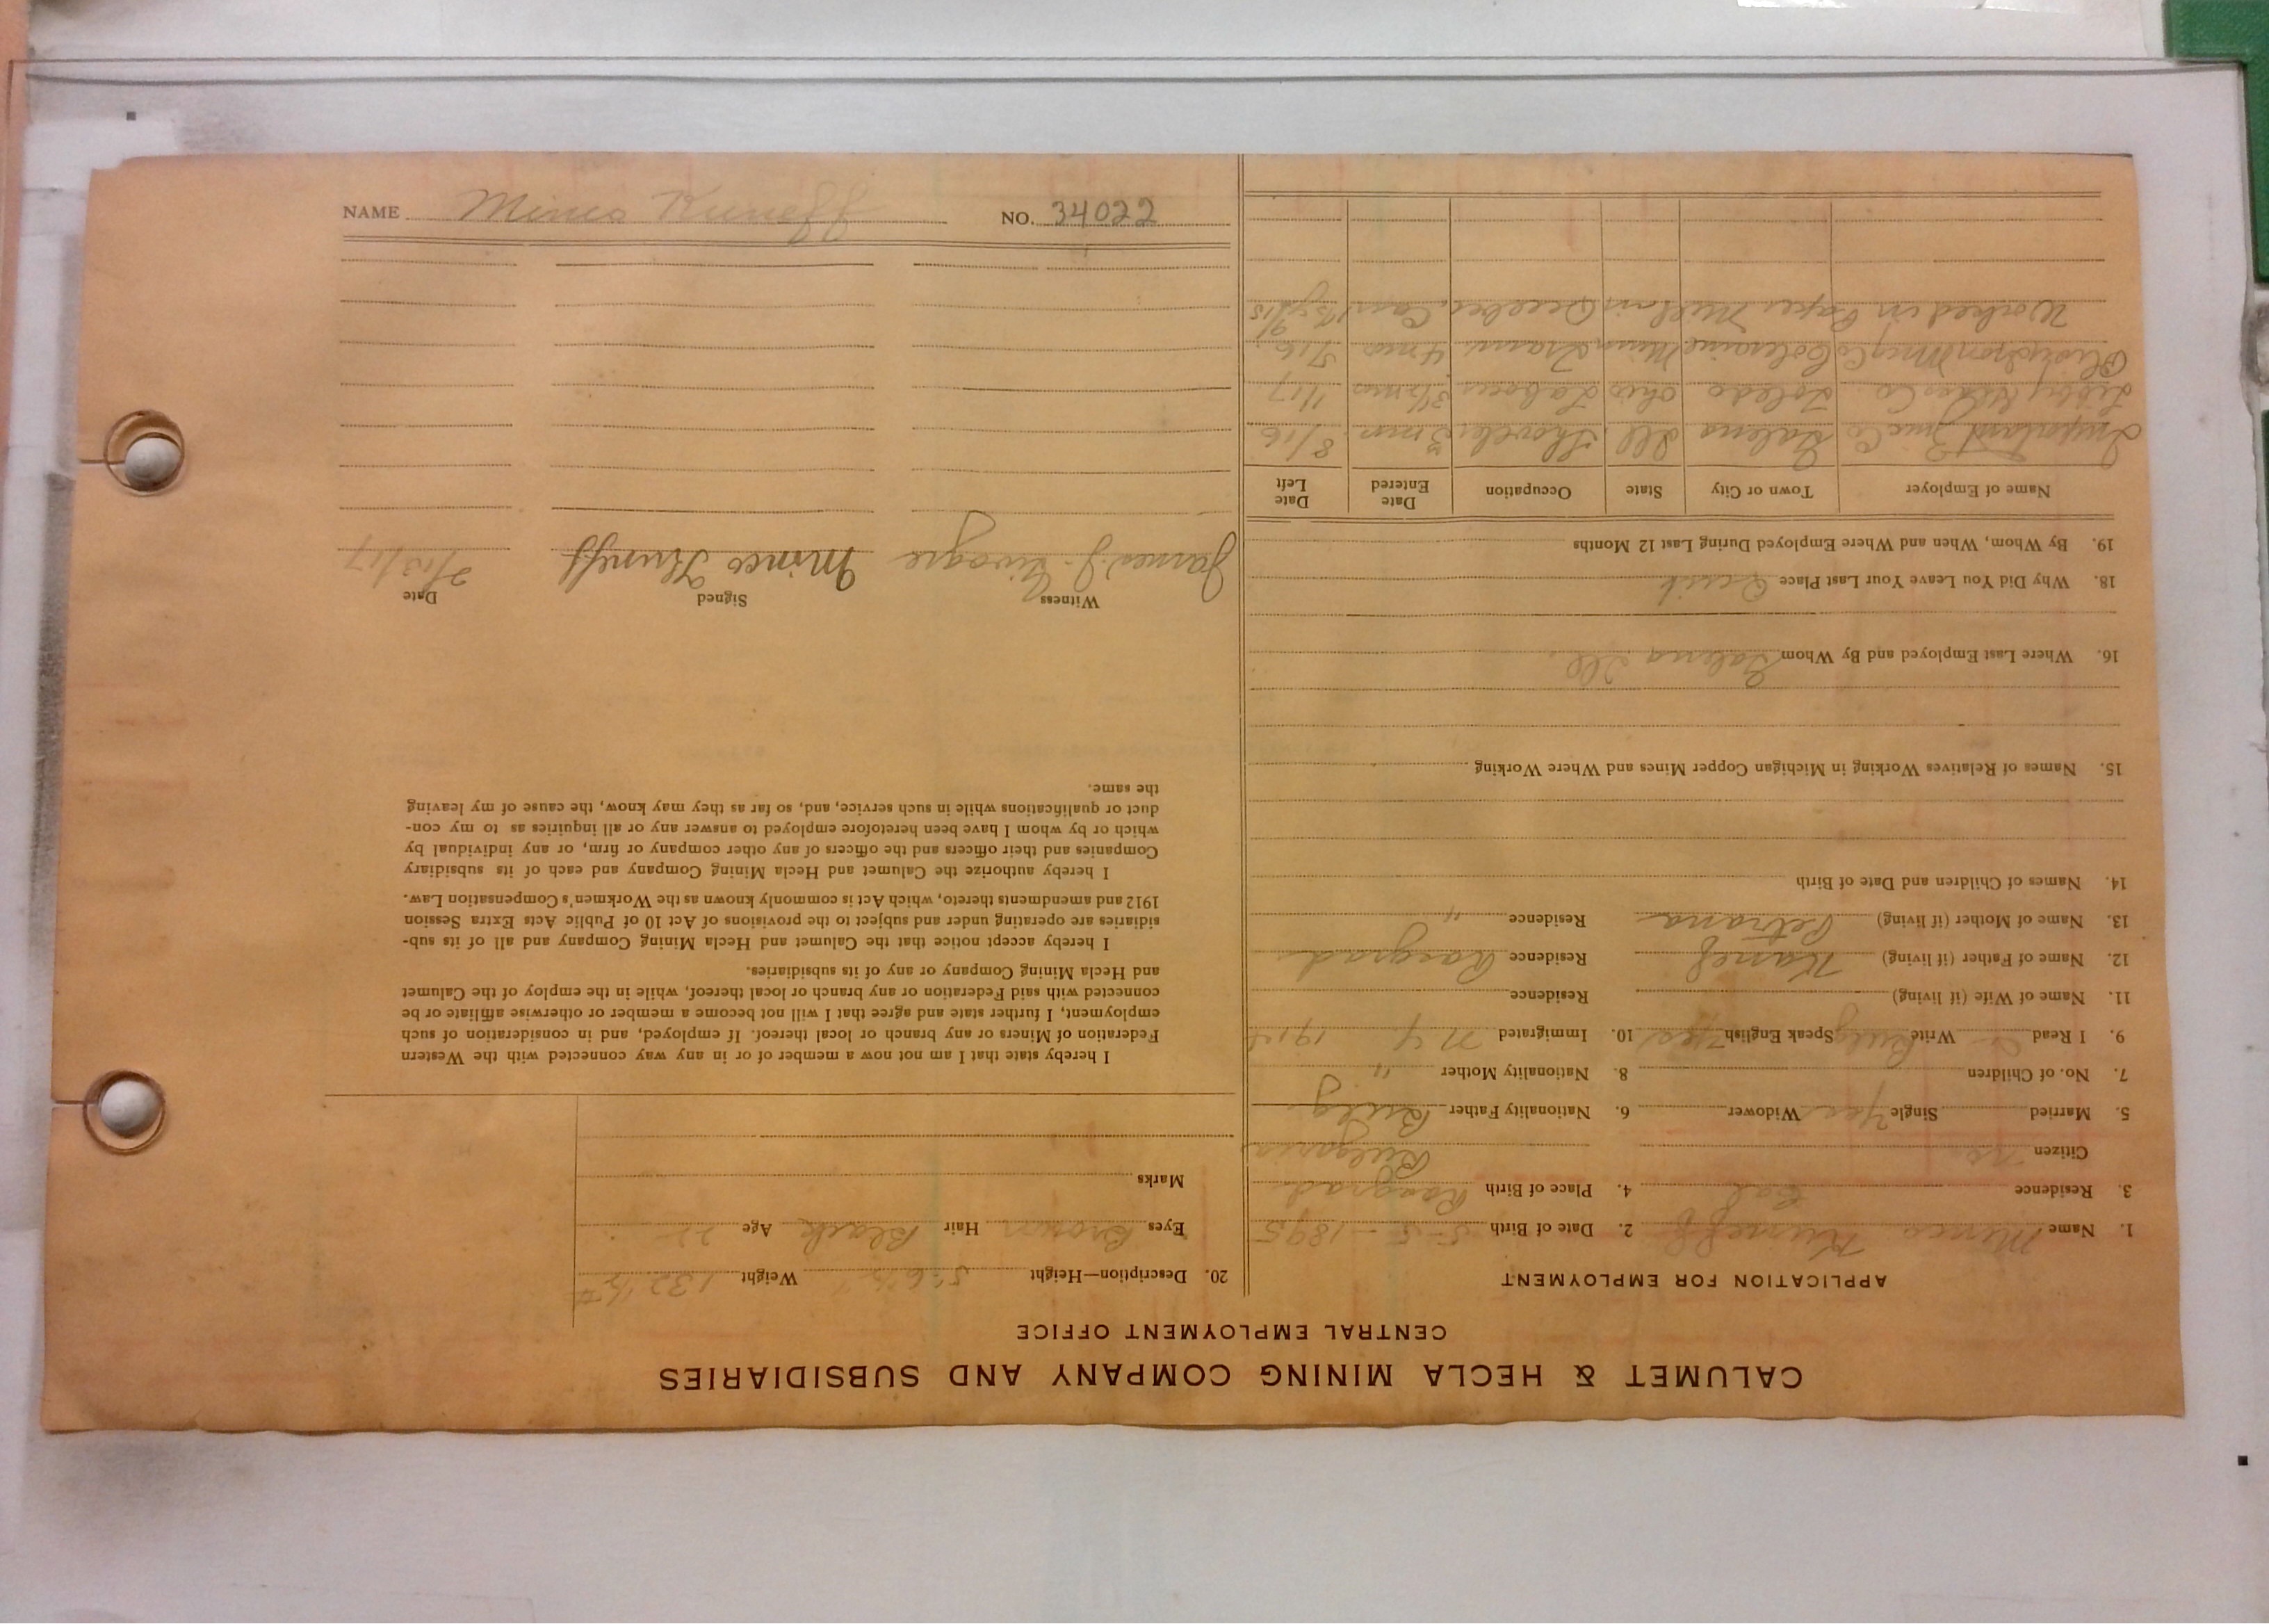 CALUMET & HECLA MINING COMPANY AND SUBSIDIARIES
CENTRAL EMPLOYMENT OFFICE
APPLICATION FOR EMPLOYMENT
1. Name Minco Kuneff 2. Date of Birth 5-5-1895
3. Residence Cal 4. Place of Birth Rasgrad
Citizen no Bulgaria
5. Married Single Yes Widower 6. Nationality Father Bulg
7. No. of Children 8. Nationality Mother "
9. I Read Write Bulg Speak English Yes 10. Immigrated N Y
11. Name of Wife (if living) Residence
12. Name of Father (if living) Kanef Residence Rasgrad
13. Name of Mother (if living) Petrana Residence "
14. Names of Children and Date of Birth
15. Names of Relatives Working in Michigan Copper Mines and Where Working
16. Where Last Employed and By Whom Galena Ill.
18. Why Did You Leave Your Last Place Quit
19. By Whom, When and Where Employed During Last 12 Months
Name of Employer Town or City State Occupation Date Entered Date Left
Zinc Co Galena Ill Shoveler 3 mn. 8/16
Libby Glass Co Toledo Ohio Laborer 3½ mos 1/17
Oliver Iron Mng Co Coleraine Minn 4 mos 5/16
Worked in Paper Mill in Quebec Can 9/15
20. Description—Height 5-6½" Weight 132½#
Eyes Brown Hair Black Age 22
Marks
I hereby state that I am not now a member of or in any way connected with the Western
Federation of Miners or any branch or local thereof. If employed, and in consideration of such
employment, I further state and agree that I will not become a member or otherwise affiliate or be
connected with said Federation or any branch or local thereof, while in the employ of the Calumet
and Hecla Mining Company or any of its subsidiaries.
I hereby accept notice that the Calumet and Hecla Mining Company and all of its sub-
sidiaries are operating under and subject to the provisions of Act 10 of Public Acts Extra Session
1912 and amendments thereto, which Act is commonly known as the Workmen's Compensation Law.
I hereby authorize the Calumet and Hecla Mining Company and each of its subsidiary
Companies and their officers and the officers of any other company or firm, or any individual by
which or by whom I have been heretofore employed to answer any or all inquiries as to my con-
duct or qualifications while in such service, and, so far as they may know, the cause of my leaving
the same.
Witness Signed Date
James J. Minco Kuneff 2/13/17
NAME Minco Kuneff NO. 34022